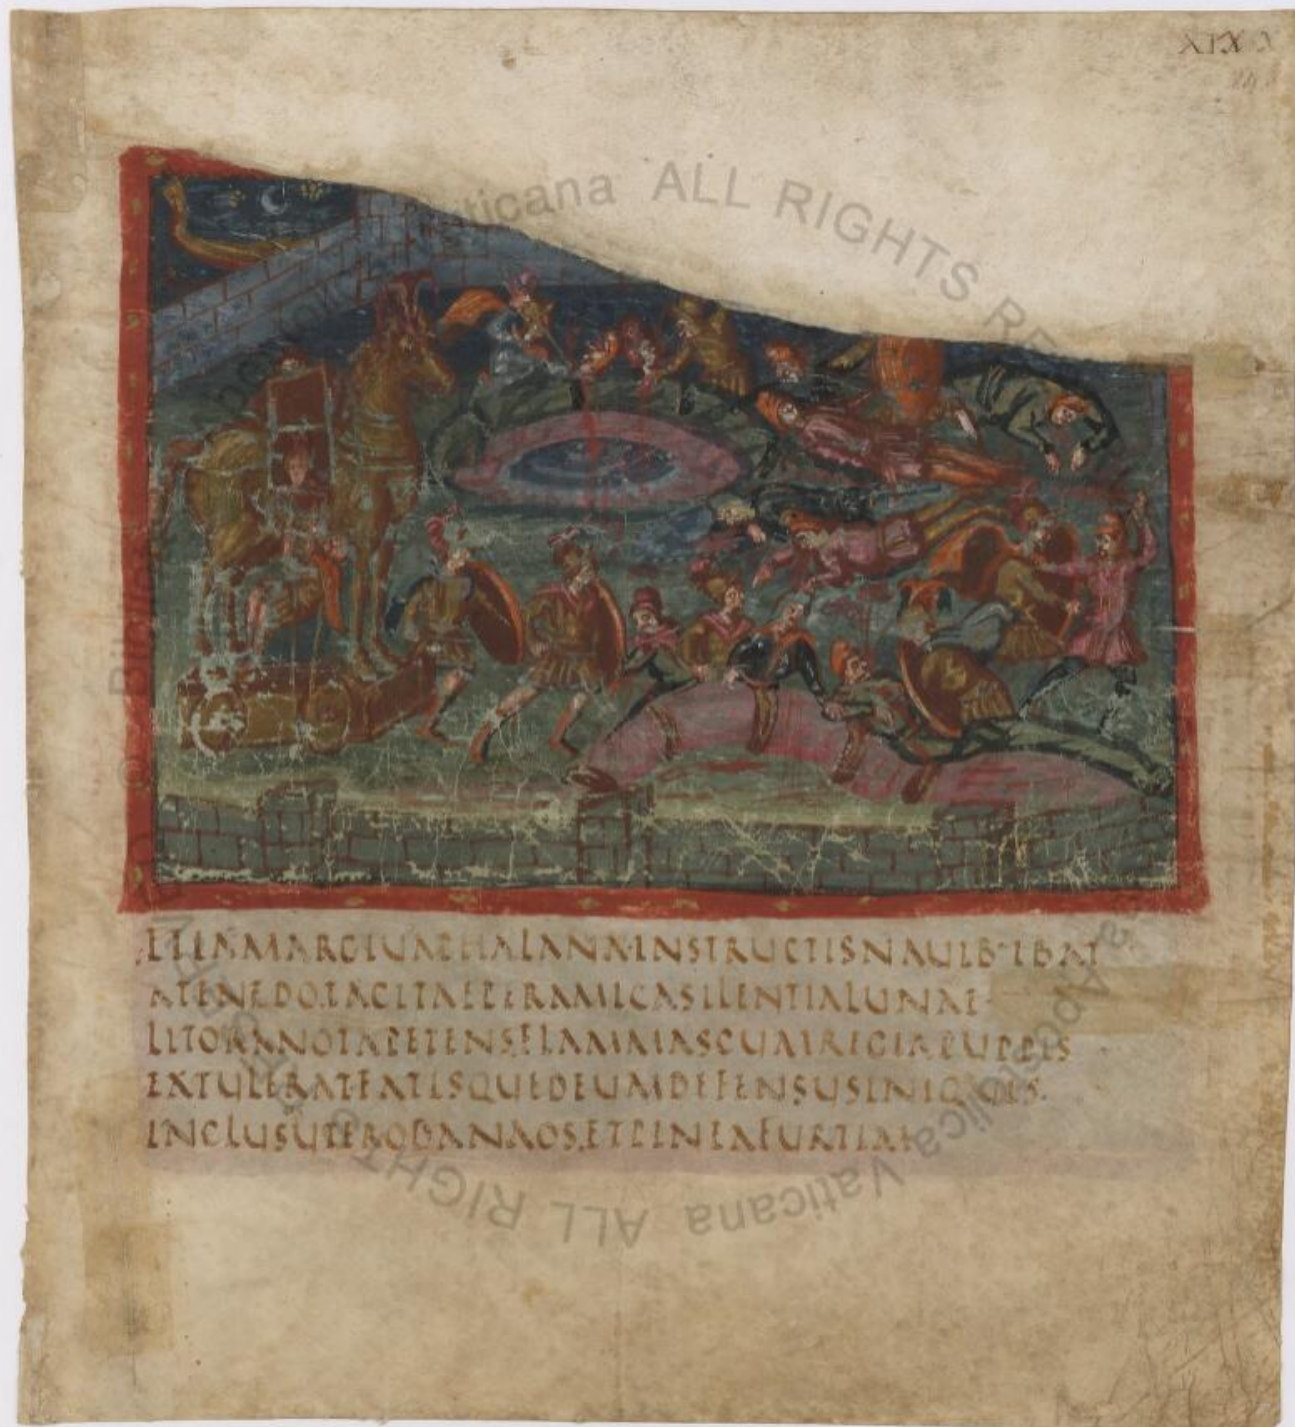 XIX
ETIAMARGIVAPHALANXINSTRUCTISNAVIB·IBAT
ATENEDO.TACITAEPERAMICASILENTIALUNAE·
LITORANOTAPETENS.FLAMMASCUMREGIAPUPPIS
EXTULERATFATISQUEDEUMDEFENSUSINIQUIS.
INCLUSUTERODANAOS.ETPINEAFURTIM
ALL RIGHTS
Vaticana ALL RIGHTS